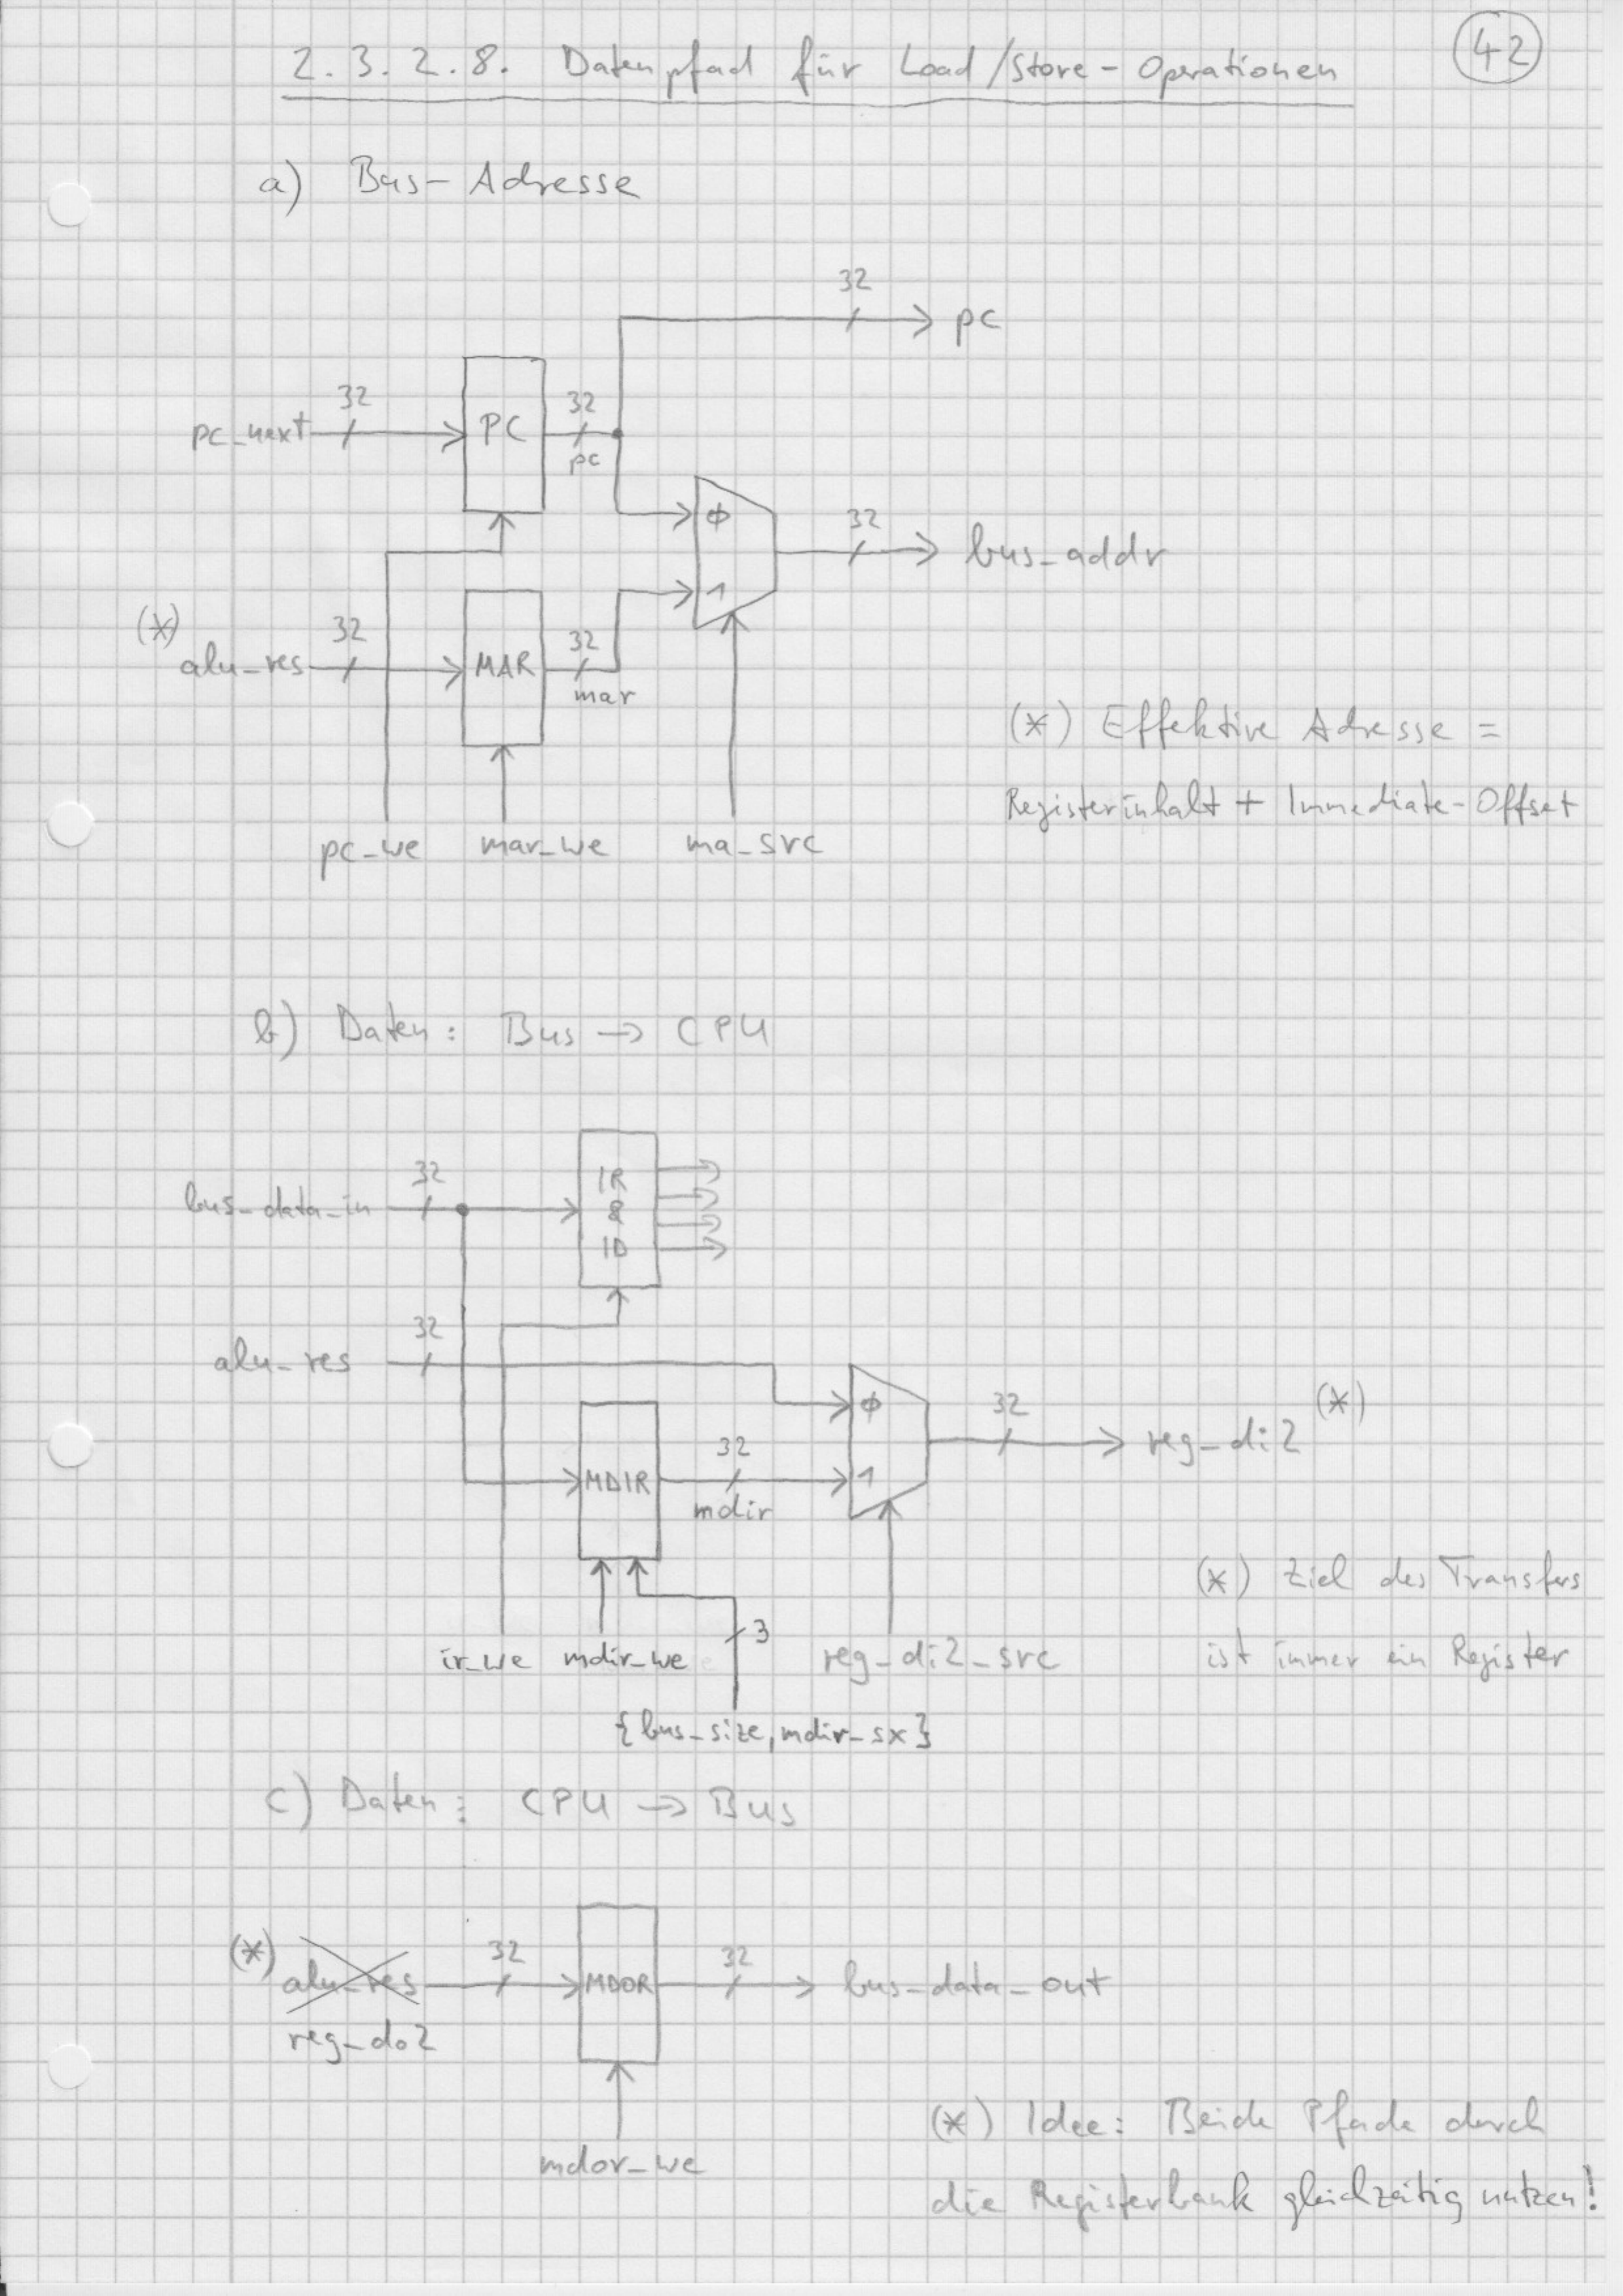 2.3.2.8. Datenpfad für Load/Store-Operationen
42
a) Bus-Adresse
32
pc
pc_next
32
PC
32
pc
ϕ
32
bus_addr
1
(*)
alu_res
32
MAR
32
mar
pc_we
mar_we
ma_src
(*) Effektive Adresse =
Registerinhalt + Immediate-Offset
b) Daten: Bus → CPU
bus_data_in
32
IR
&
ID
alu_res
32
ϕ
32
reg_di2 (*)
MDIR
32
mdir
1
3
ir_we
mdir_we
reg_di2_src
{bus_size, mdir_sx}
(*) Ziel des Transfers
ist immer ein Register
c) Daten: CPU → Bus
(*)
alu_res
reg_do2
32
MDOR
32
bus_data_out
mdor_we
(*) Idee: Beide Pfade durch
die Registerbank gleichzeitig nutzen!